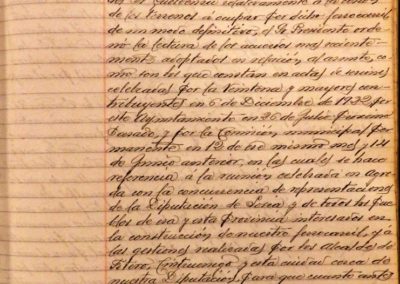 relativamente á la cesión
de los terrenos á ocupar por dicho ferrocarril
de un modo definitivo, el Sr. Presidente orde-
nó la lectura de los acuerdos mas reciente-
mente adoptados en relación al asunto, co-
mo son los que constan en actas de sesiones
celebradas por la Veintena y mayores con-
tribuyentes en 6 de Diciembre de 1922 por
este Ayuntamiento en 26 de Julio proximo
pasado, y por la Comisión municipal per-
manente en 12 de ese mismo mes y 14
de Junio anterior, en las cuales se hace
referencia á la reunión celebrada en Agre-
da con la concurrencia de representaciones
de la Diputación de Soria y de todos los pue-
blos de esa y esta provincia interesados en
la construcción de nuestro ferrocarril, y á
las gestiones realizadas por los Alcaldes de
Fitero, Cintruenigo y esta ciudad cerca de
nuestra Diputación, para que cuanto antes